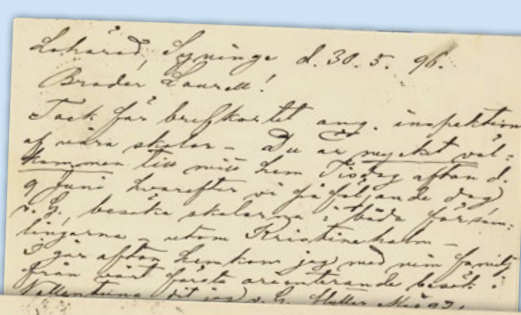 Lohärad, Syninge d. 30.5. 96.
Broder Laurell!
Tack för brefkortet ang. inspektion
af våra skolor – Du är mycket väl-
kommen till mitt hem Tisdag afton d.
9 Juni hvarefter vi på följande dag
v. G. besöka skolorna i båda försam-
lingarna – utom Kristineholm –
I går afton hemkom jag med min familj
från vårt första orienterande besök i
Vallentuna, dit jag v. G.